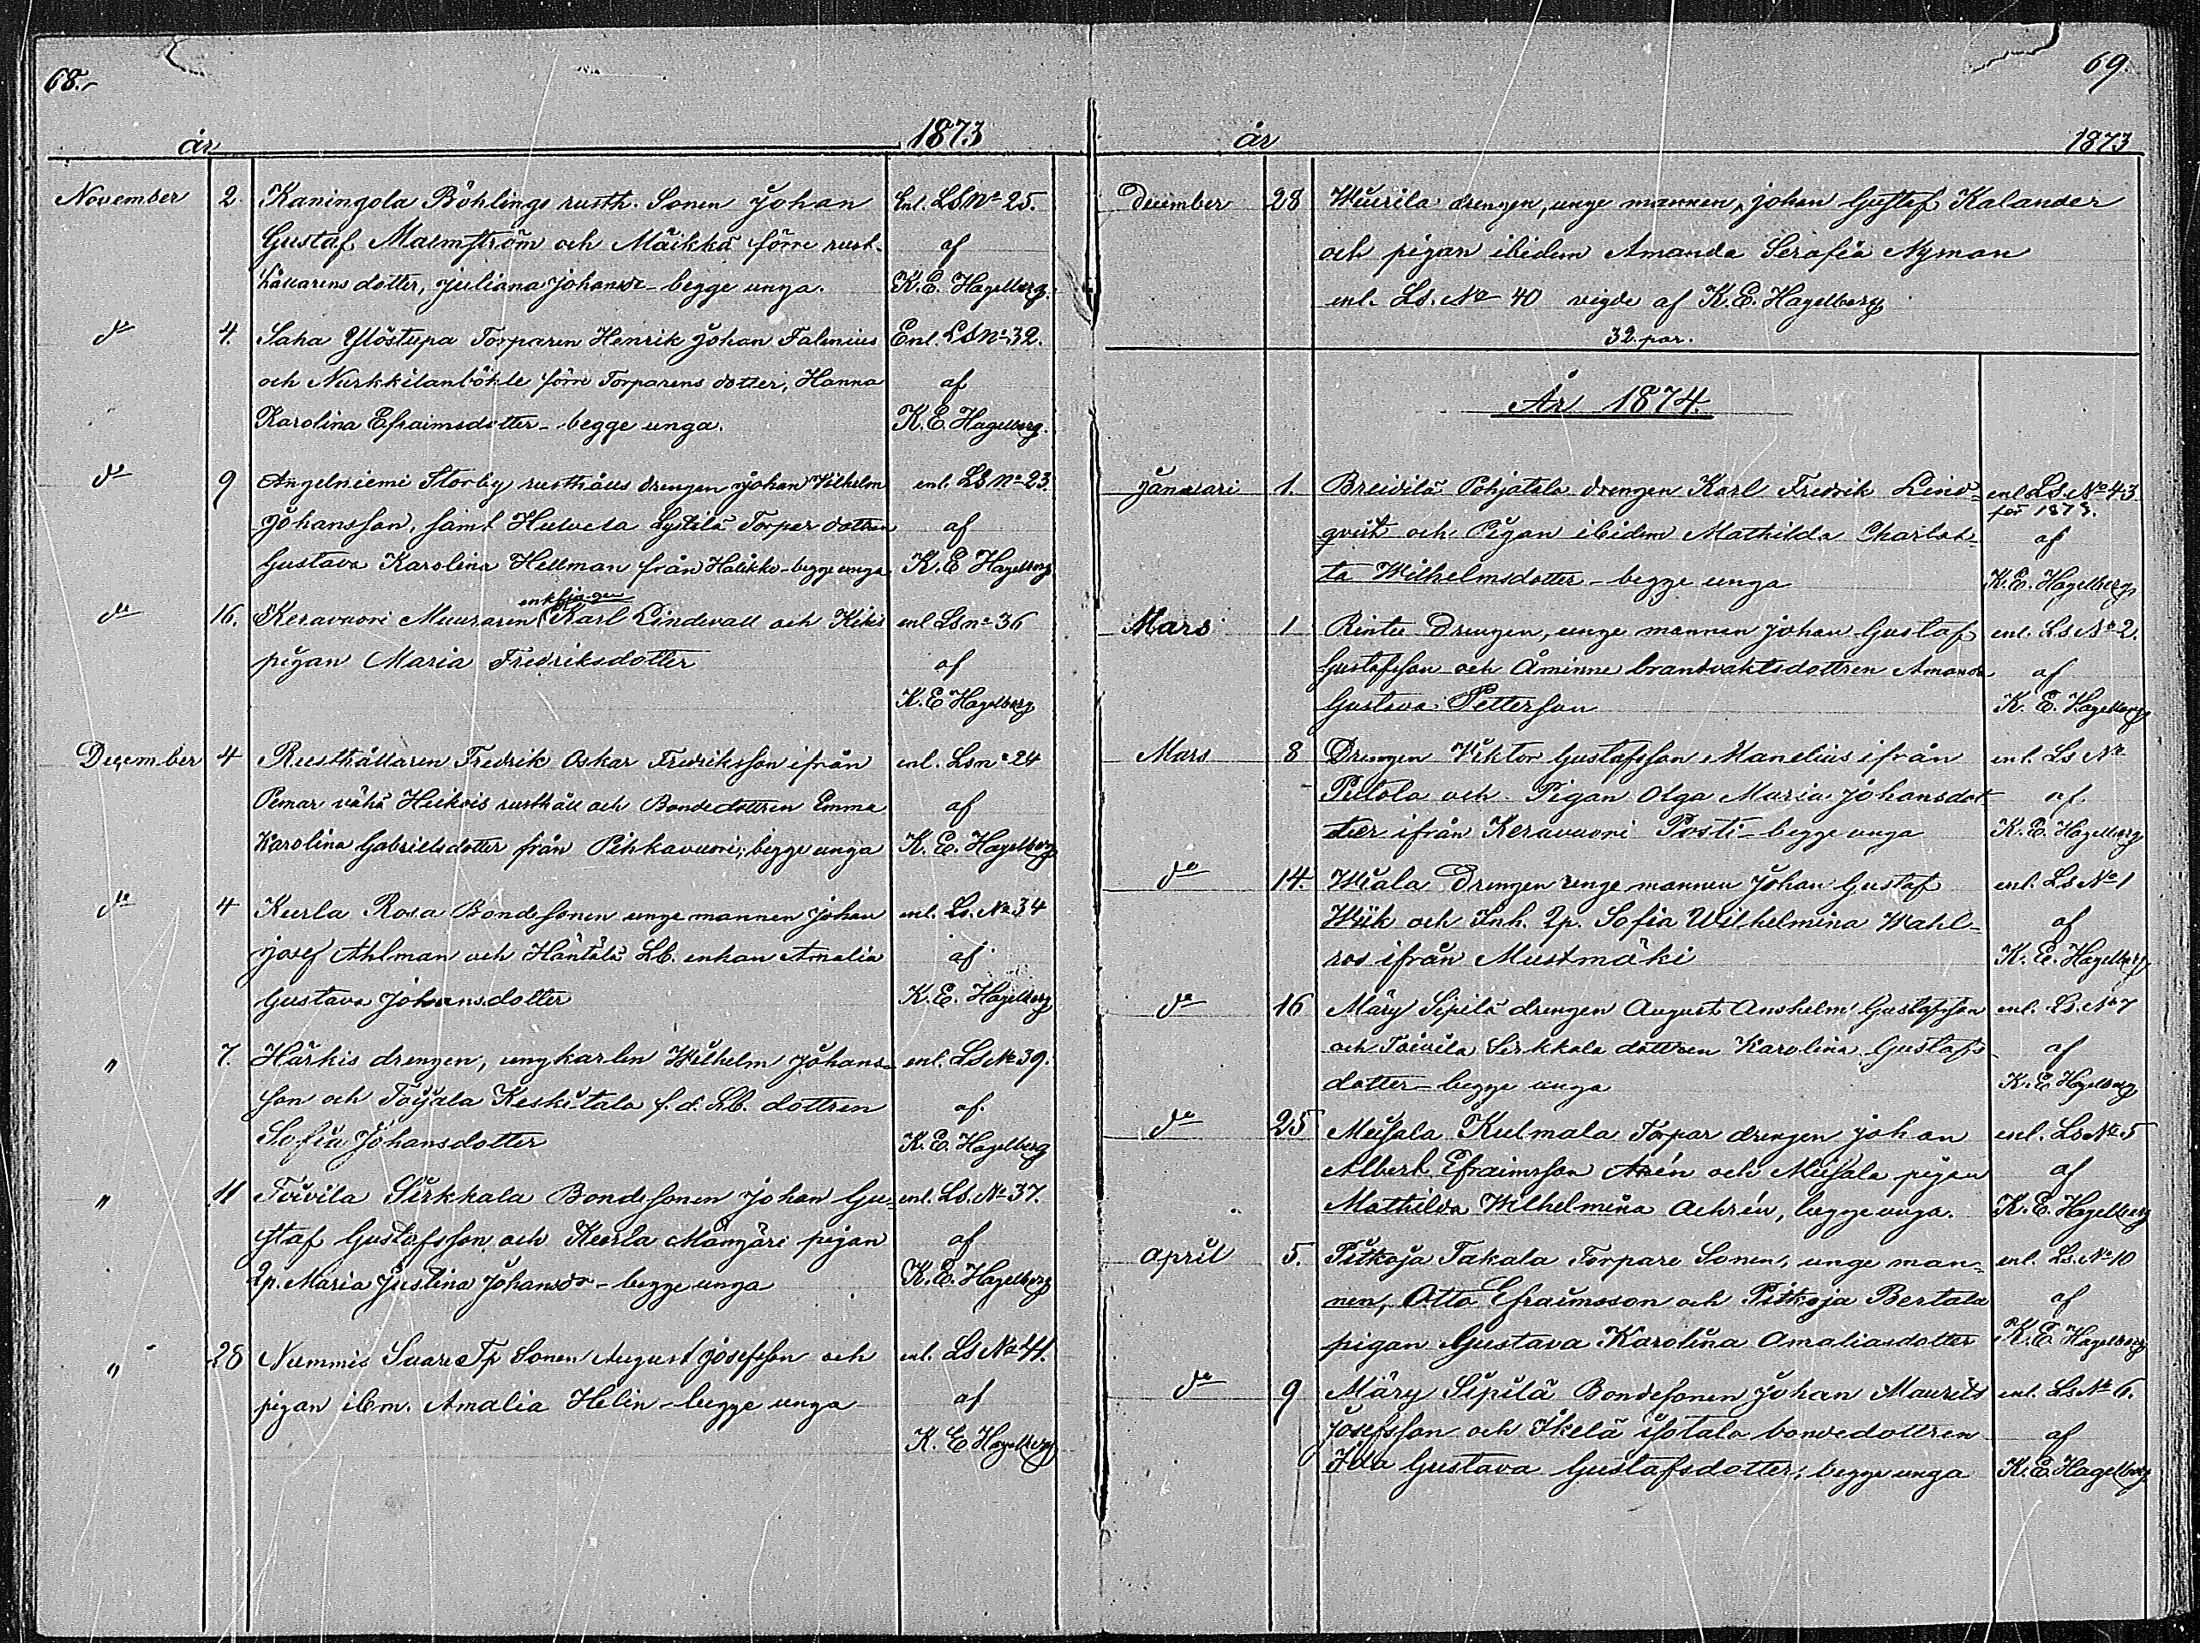 68.
år 1873
November 2. Kaningola Böhlings rusth. Sonen Johan Enl. LS Nº 25.
Gustaf Malmström och Märkkä förre rust- af
hållarens dotter, Juliana Johansdr - begge unga. K. E. Hagelberg.
do 4. Saha Ylöstupa Torparen Henrik Johan Falenius Enl. LS Nº 32.
och Nurkkilanbökle förre Torparens dotter, Hanna af
Karolina Efraimsdotter - begge unga. K. E. Hagelberg.
do 9 Angelniemi Storby rusthålls drengen Johan Vilhelm enl. LS Nº 23.
Johansson, samt Lystilä Torpar dottren af
Gustava Karolina Hellman från Halikko - begge unga K. E Hagelberg
enklingen
do 16. Keravuori Muuraren Karl Lindevall och Kikis enl LS nº 36
pigan Maria Fredriksdotter af
K. E Hagelberg
December 4 Rusthållaren Fredrik Oskar Fredriksson ifrån enl. Ls nº 24
Pemar vähä Heikois rusthåll och Bondedottren Emma af
Karolina Gabrielsdotter från Pihkavuori; begge unga K. E. Hagelberg
do 4 Kurla Rosa Bondesonen unge mannen Johan enl. Ls. Nº 34
Josef Ahlman och Häntälä Lb. enkan Amalia af
Gustava Johansdotter K. E. Hagelberg
" 7. Härkis drengen, ungkarlen Wilhelm Johans- enl. LS Nº 39.
son och Toijala Keskitalo f. d. Lb. dottren af.
Sofia Johansdotter K. E. Hagelberg
" 11 Toivila Sirkkala Bondesonen Johan Gu- enl. LS. Nº 37.
staf Gustafsson och Kurla Mångäri pigan af
Qp. Maria Justina Johansdr - begge unga K. E. Hagelberg
" 28 Nummis Suare Tp Sonen August Josefsson och enl. LS Nº 41.
pigan ibm. Amalia Helin - begge unga af
K. E Hagelberg
69.
år 1873
December 28 Wuurila drengen, unge mannen, Johan Gustaf Kalander
och pigan ibidem Amanda Serafia Nyman
enl. LS. Nº 40 vigde af K. E. Hagelberg
32 par.
År 1874.
Januari 1. Breidilä Pohjatalo drengen Karl Fredrik Lind- enl LS. Nº 43
för 1873.
qvist och Pigan ibidem Mathilda Charlot- af
ta Wilhelmsdotter - begge unga K. E. Hagelberg
Mars 1 Rintee Drengen, unge mannen Johan Gustaf enl. LS Nº 2.
Gustafsson och Åminne brandvaktsdottren Amanda af
Gustava Petterson K. E. Hagelberg
Mars 8 Drengen Viktor Gustafsson Manelius ifrån enl. Ls Nº
Peltola och Pigan Olga Maria Johansdot- af.
ter ifrån Keravuori Posti - begge unga K. E. Hagelberg
do 14. Wiala Drengen unge mannen Johan Gustaf enl. Ls Nº 1
Wiik och Inh. Qp. Sofia Wilhelmina Wahl- af
ros ifrån Mustmäki K. E. Hagelberg
do 16 Märy Sipilä drengen August Anshelm Gustafsson enl. Ls. Nº 7
och Toivila Sirkkala dottren Karolina Gustafs- af
dotter - begge unga K. E. Hagelberg
do 25 Meisala Kulmala Torpar drengen Johan enl. Ls Nº 5
Albert Efraimsson Arén och Meisala pigan af
Mathilda Wilhelmina Achrén, begge unga. K. E. Hagelberg
April 5. Pitkoja Takala Torpare Sonen, unge man- enl. Ls. Nº 10
nen, Otto Efraimsson och Pitkoja Bertala af
pigan Gustava Karolina Amaliasdotter K. E. Hagelberg
do 9 Märy Sipilä Bondesonen Johan Maurits enl. Ls Nº 6.
Josefsson och Ikelä isotalo bondedottren af
Ida Gustava Gustafsdotter; begge unga K. E. Hagelberg